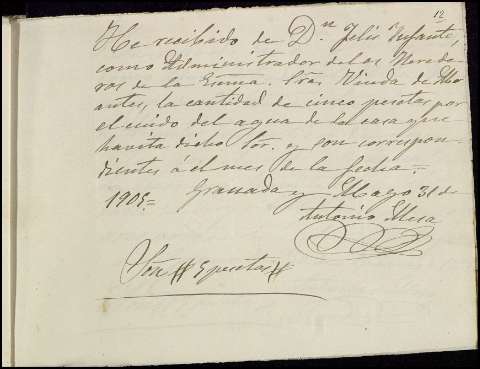 12
He recibido de Dn Felis Infante,
como Administrador de los Herede-
ros de la Exma. Sra. Viuda de Mo
antes, la cantidad de cinco pesetas por
el cuido del agua de la casa que
havita dicho Sor. y son correspon-
dientes á el mes de la fecha.=
1905.= Granada y Mayo 31 de
Antonio Mesa
Son # 5 pesetas #